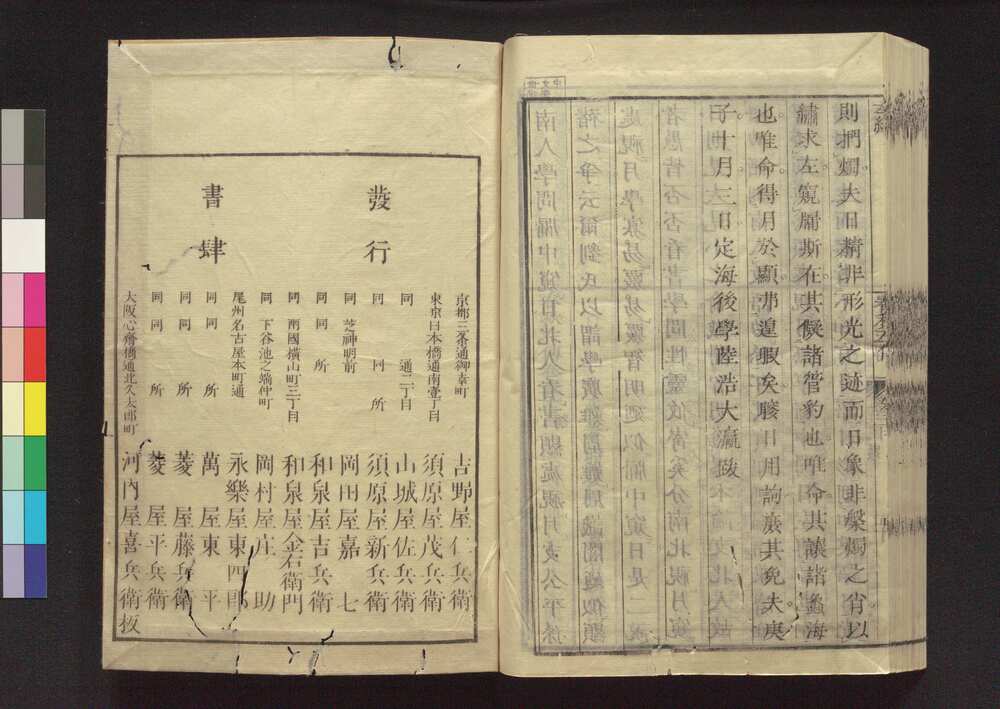 則捫燭夫日精非形光之迹而日象非槃燭之肖以
繡求左窺牖斯在其儗諸管豹也唯命其讓諸蠡海
也唯命得月於顯弗遑暇矣賸日用詗蔟其免夫庚
子十月三日定海後學陸浩大瀛跋
發行
書肆
京都三条通御幸町 吉野屋仁兵衛
東京日本橋通南壹丁目 須原屋茂兵衛
同 通二丁目 山城屋佐兵衛
同 同所 須原屋新兵衛
同 芝神明前 岡田屋嘉七
同 同所 和泉屋吉兵衛
同 兩國横山町三丁目 和泉屋金右衛門
同 下谷池之端仲町 岡村屋庄助
尾州名古屋本町通 永樂屋東四郎
同 同所 萬屋東平
同 同所 菱屋藤兵衛
同 同所 菱屋平兵衛
大阪心齋橋通北久太郎町 河内屋喜兵衛板